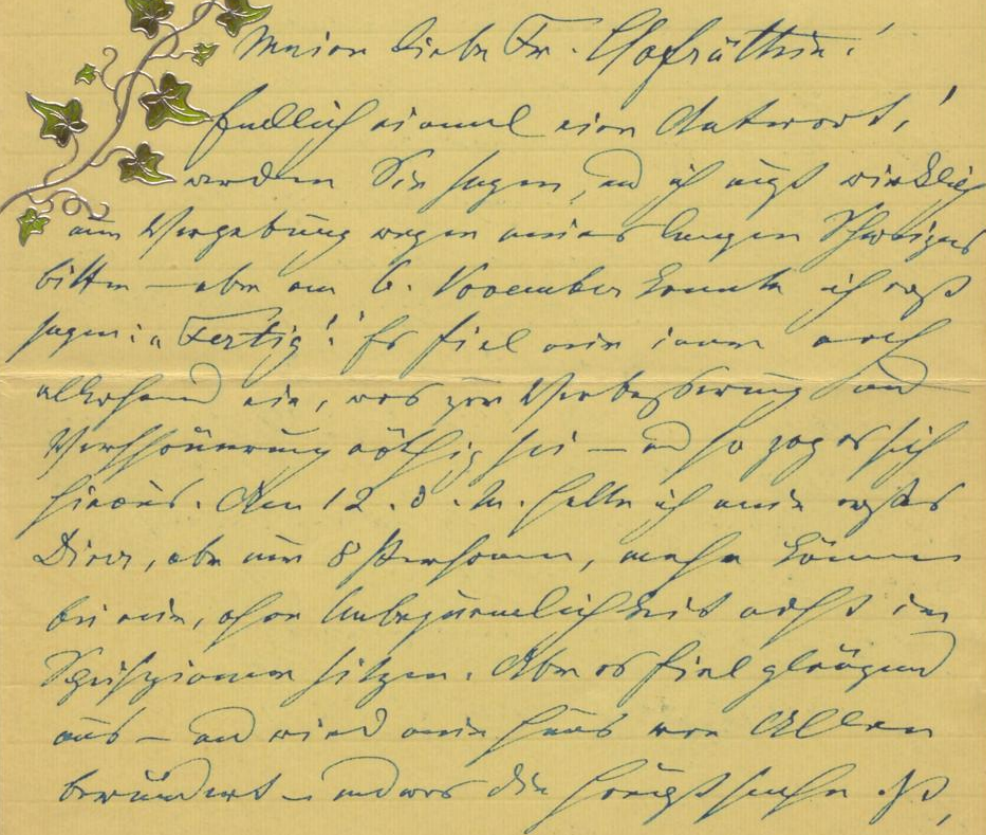 Meine liebe Fr. Hofräthin!
Endlich einmal eine Antwort!
werden Sie sagen, und ich muß wirklich
um Vergebung wegen meines langen Schweigens
bitten – aber am 6. November konnte ich erst
sagen: „Fertig! Es fiel mir immer noch
allerhand ein, was zur Verbesserung und
Verschönerung nöthig sei – und so zog es sich
hinaus. Am 12. d. M. hatte ich mein erstes
Diner, aber nur 8 Personen, mehr können
bei mir, ohne Unbequemlichkeit nicht im
Speisezimmer sitzen. Aber es fiel glänzend
aus – und wird mein Haus von Allen
bewundert – und was die Hauptsache ist,